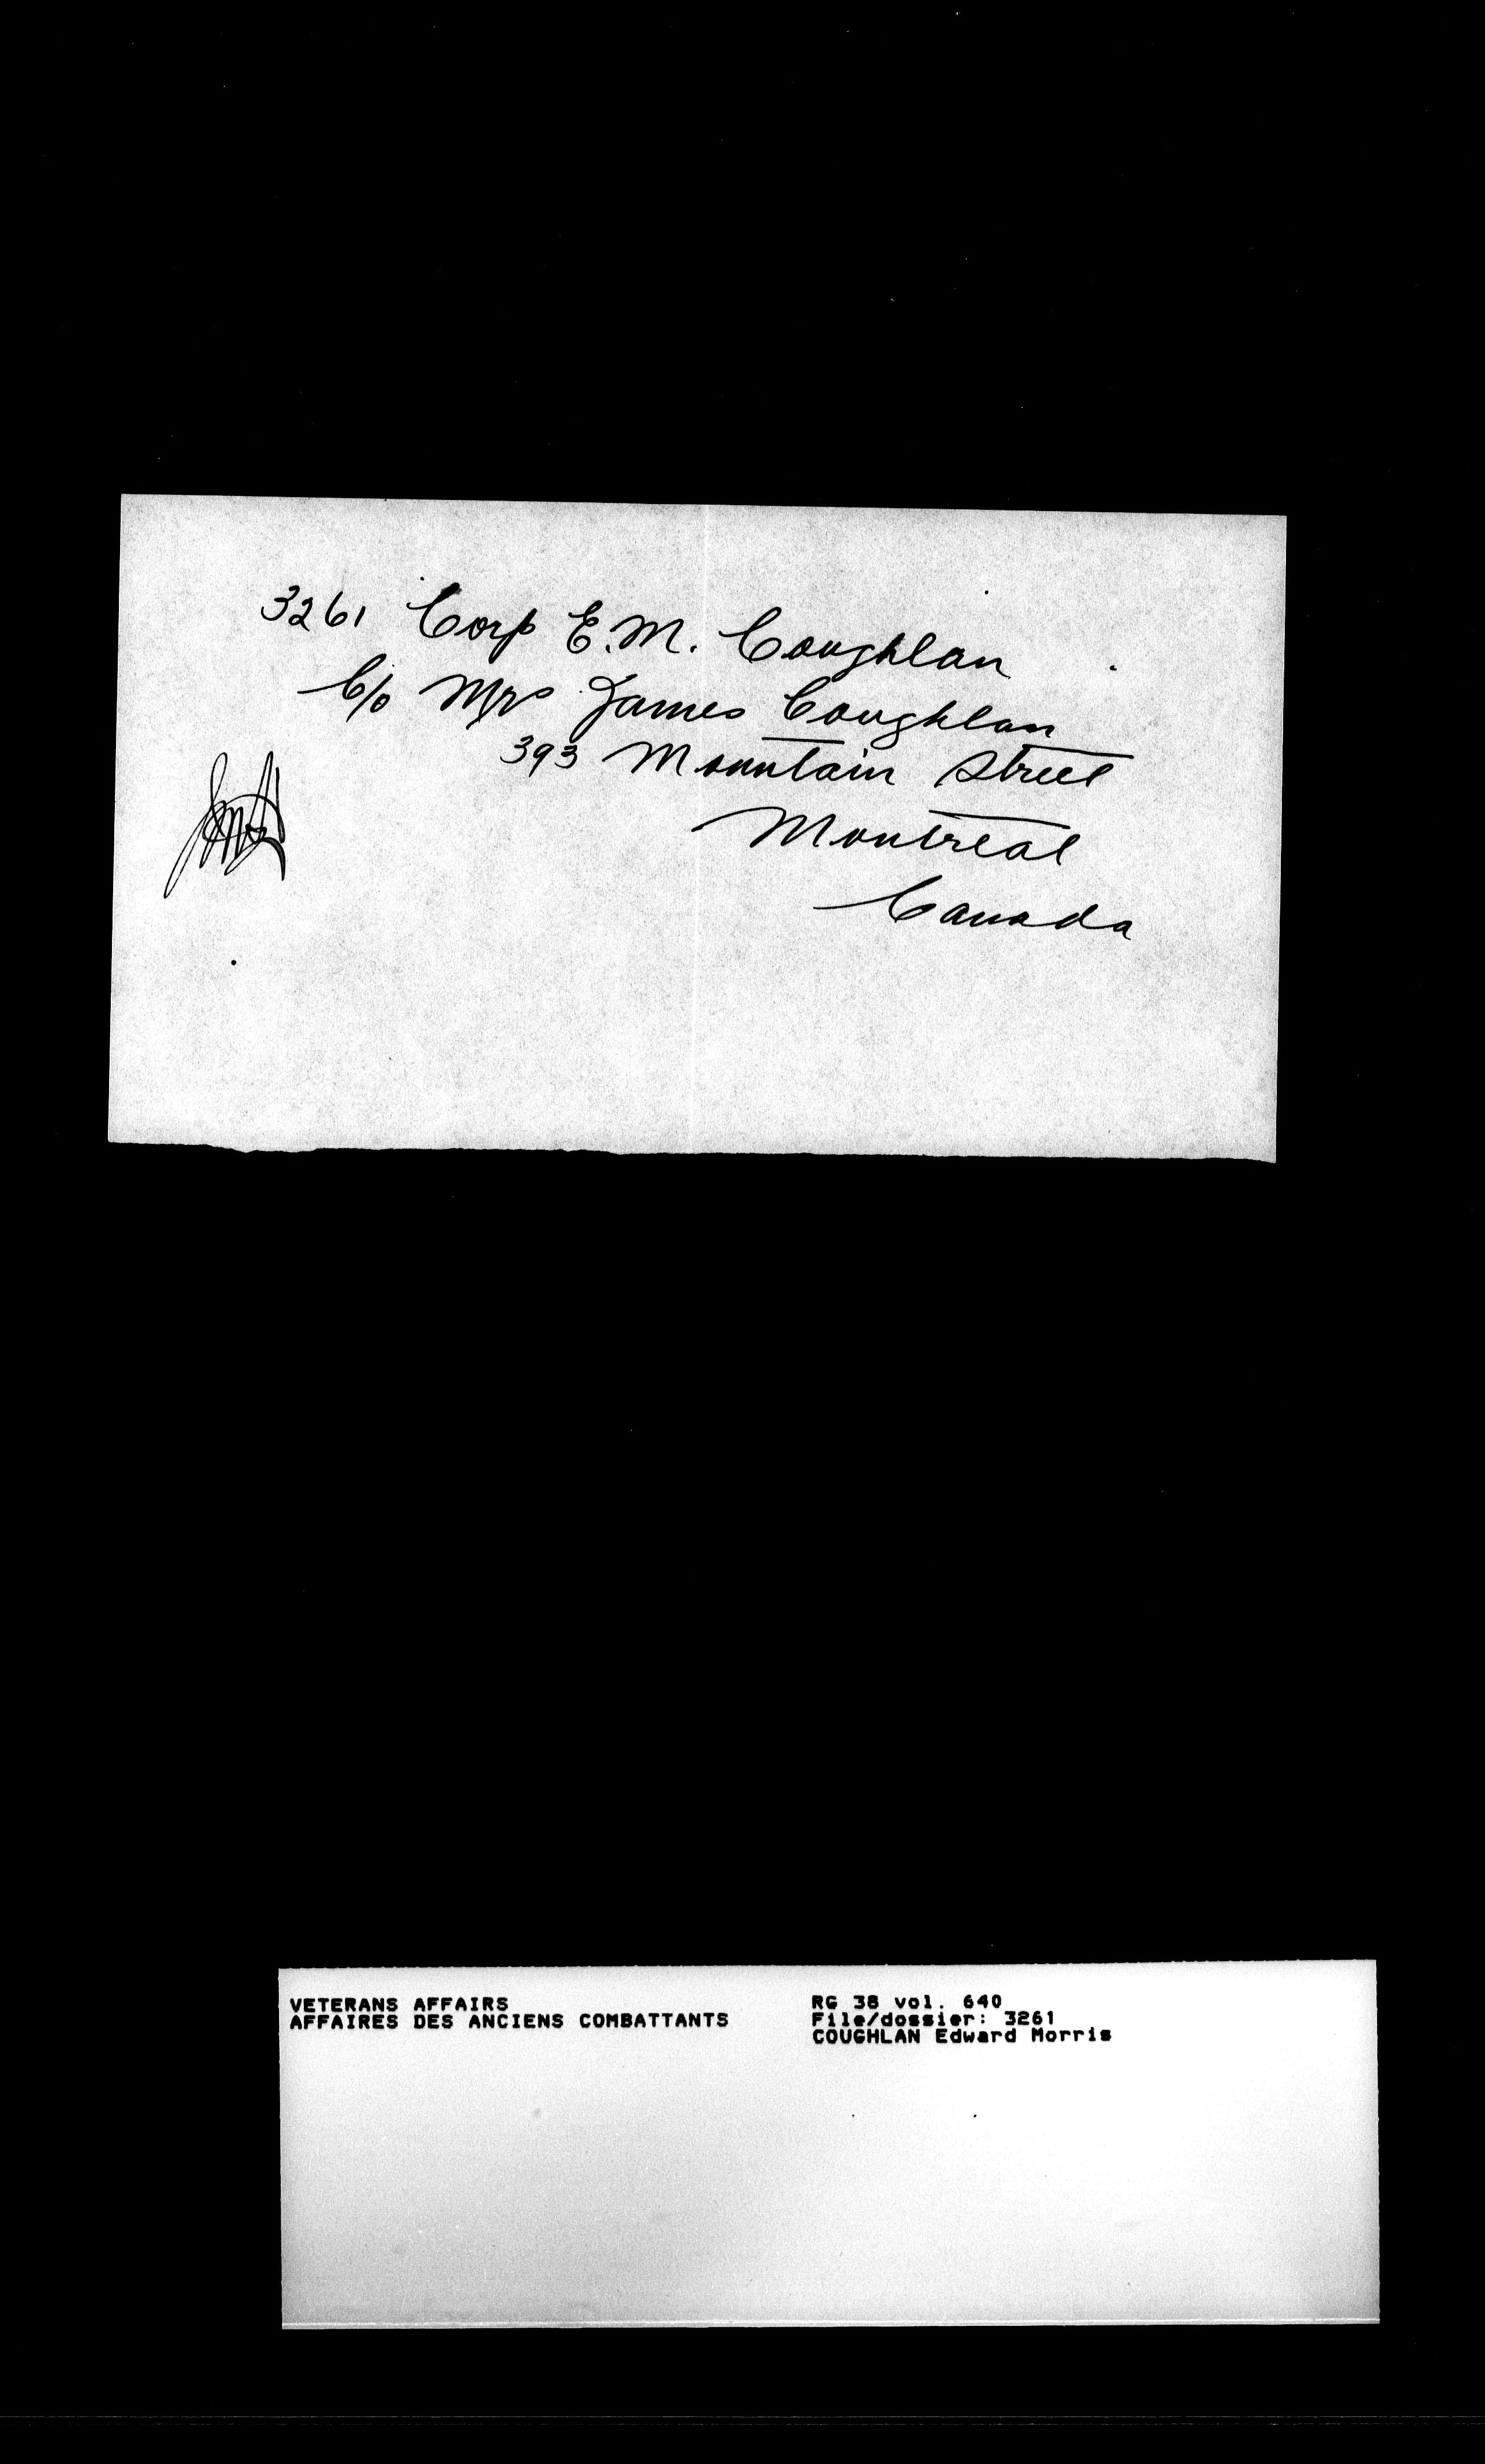 3261 Corp E.M. Coughlan
C/o Mrs James Coughlan
393 Mountain Street
Montreal
Canada
VETERANS AFFAIRS
AFFAIRES DES ANCIENS COMBATTANTS
RG 38 vol. 640
File/dossier: 3261
COUGHLAN Edward Morris